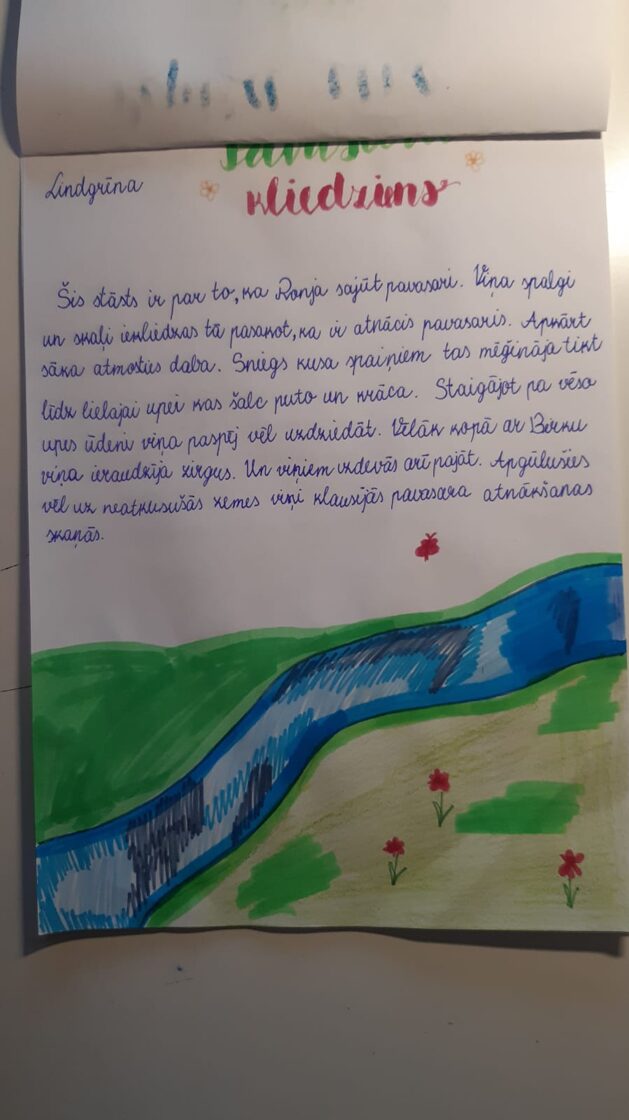 Pavasara
Lindgrīna
kliedziens
Šis stāsts ir par to, ka Ronja sajūt pavasari. Viņa spalgi
un skaļi iekliedzas tā pasakot, ka ir atnācis pavasaris. Apkārt
sāka atmosties daba. Sniegs kusa spaiņiem tas mēģināja tikt
līdz lielajai upei kas šalc puto un krāca. Staigājot pa vēso
upes ūdeni viņa paspēj vēl uzdziedāt. Vēlāk kopā ar Birku
viņa ieraudzīja zirgus. Un viņiem izdevās arī pajāt. Apgūlušies
vēl uz neatkusušās zemes viņi klausījās pavasara atnākšanas
skaņās.